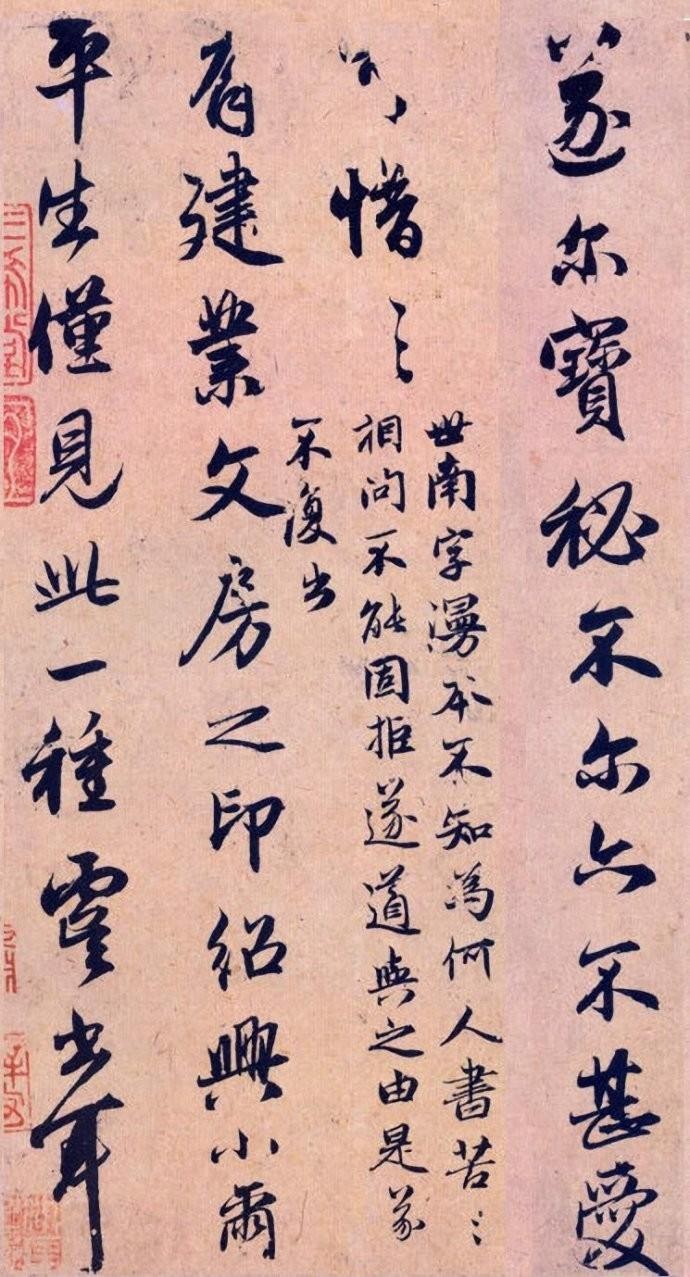 遂尔寶秘不尔亦不甚愛
可惜〻
世南字漫本不知為何人書苦〻
相问不能固拒遂道與之由是遂
不復出
有建業文房之印紹興小爾
平生僅見此一種虞書耳